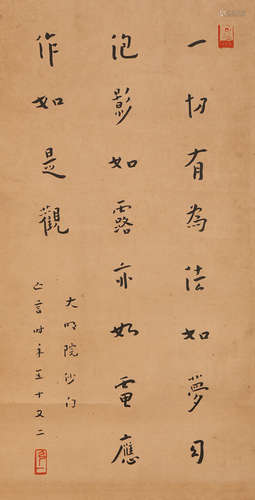 一切有為法如夢幻
泡影如露亦如電應
作如是觀
大明院沙门
亡言时年五十又二